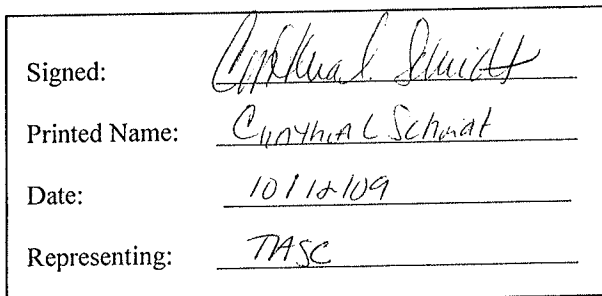 Signed: Cynthia L Schmidt
Printed Name: Cynthia L Schmidt
Date: 10/12/09
Representing: TASC